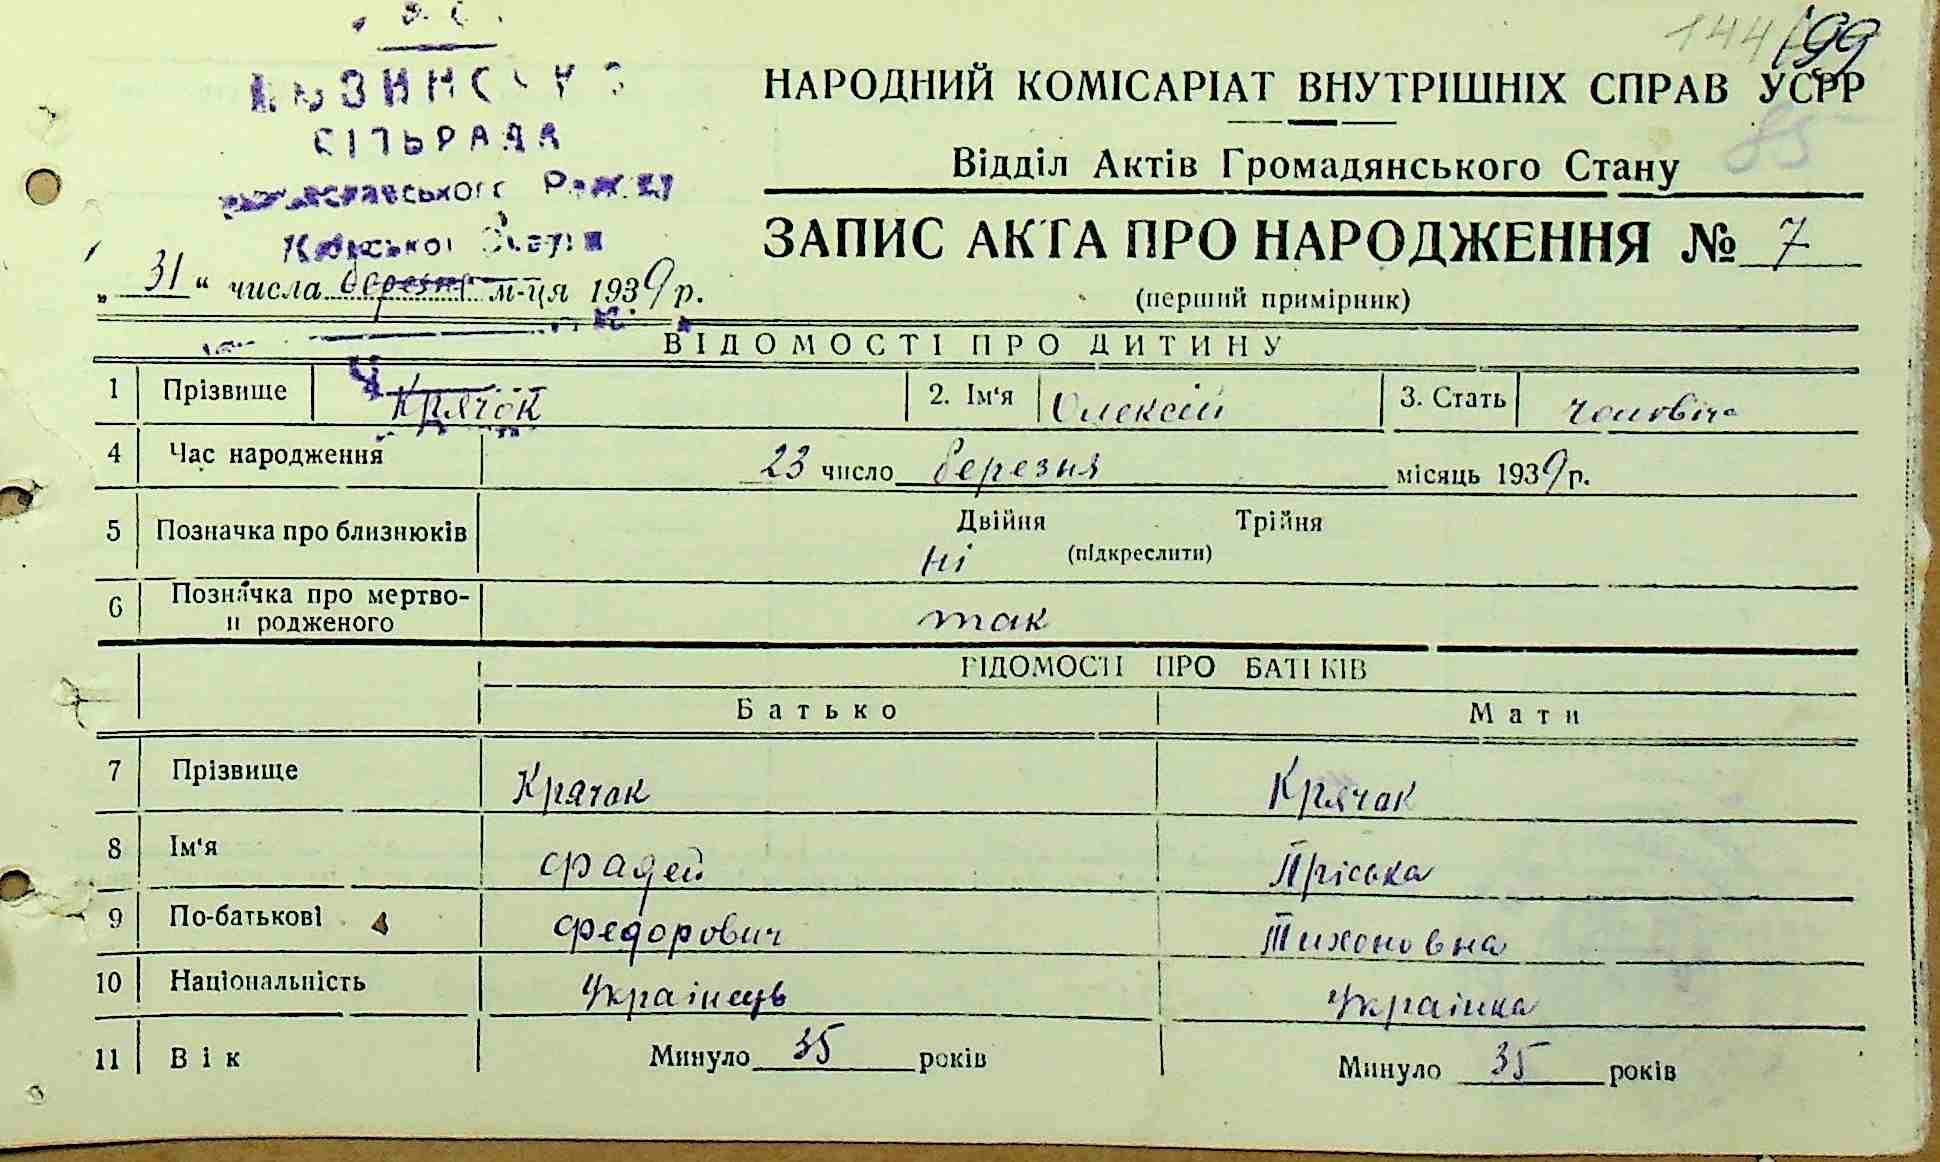 144/99
НАРОДНИЙ КОМІСАРІАТ ВНУТРІШНІХ СПРАВ УСРР
СІЛЬРАДА
85
Відділ Актів Громадянського Стану
Київської
ЗАПИС АКТА ПРО НАРОДЖЕННЯ № 7
„31“ числа березня м-ця 1939 р.
(перший примірник)
ВІДОМОСТІ ПРО ДИТИНУ
1 Прізвище Крячок 2. Ім'я Олексій 3. Стать чоловіча
4 Час народження 23 число березня місяць 1939 р.
5 Позначка про близнюків Двійня Трійня
ні (підкреслити)
6 Позначка про мертво-
н родженого так
ВІДОМОСТІ ПРО БАТЬКІВ
Батько Мати
7 Прізвище Крячок Крячок
8 Ім'я Фадей Пріська
9 По-батькові Федорович Тихоновна
10 Національність Українець Українка
11 Вік Минуло 35 років Минуло 35 років